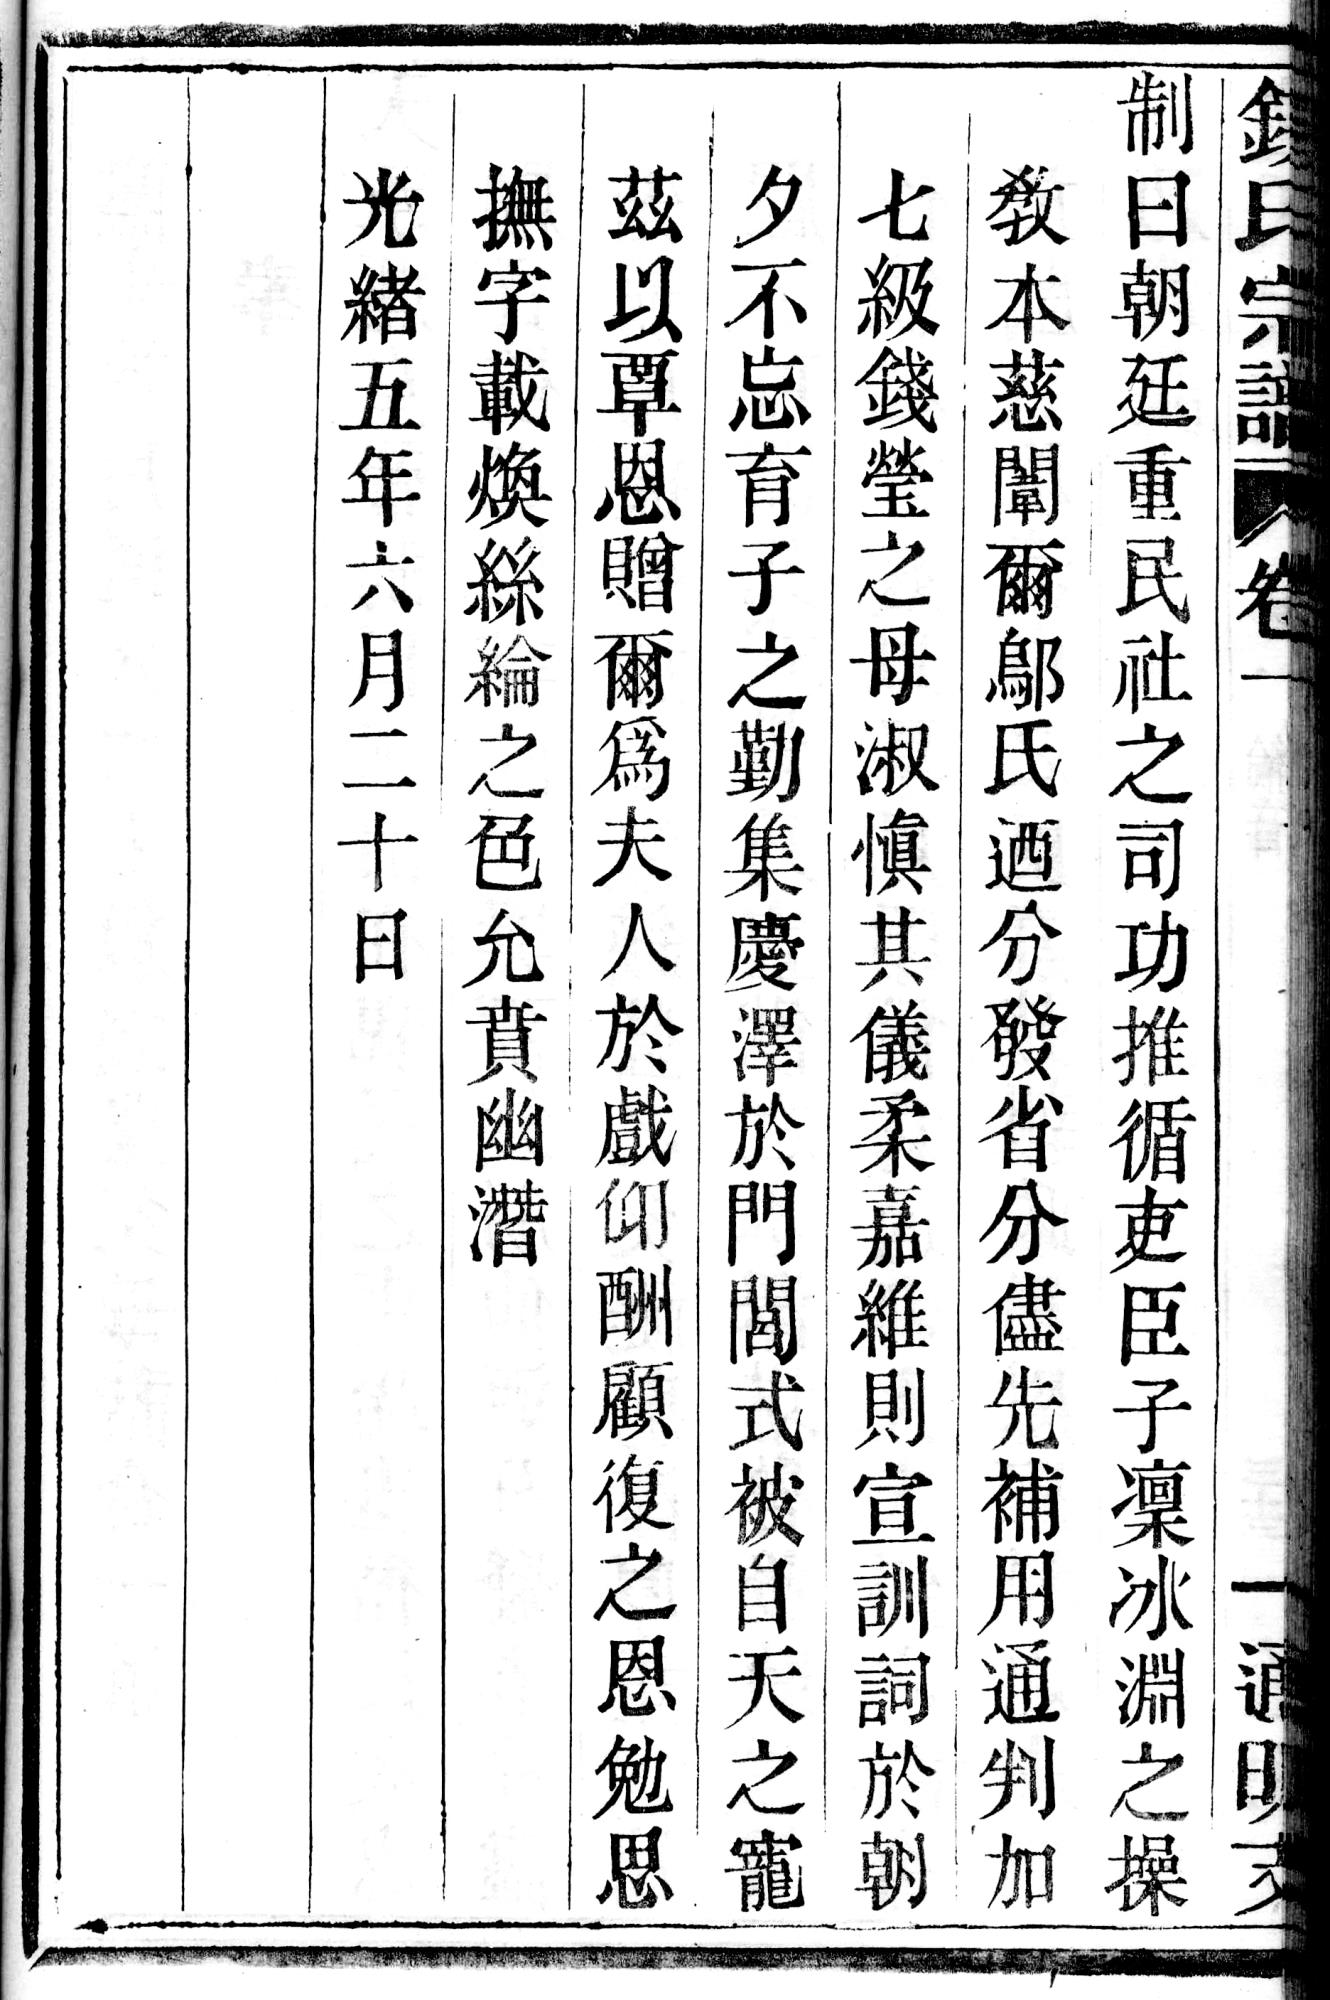 錢氏宗譜 卷一 一 通明
制曰朝廷重民社之司功推循吏臣子凜冰淵之操
敎本慈闈爾鄔氏迺分發省分儘先補用通判加
七級錢瑩之母淑愼其儀柔嘉維則宣訓詞於朝
夕不忘育子之勤集慶澤於門閭式被自天之寵
茲以覃恩贈爾爲夫人於戲仰酬顧復之恩勉思
撫字載煥絲綸之色允賁幽潛
光緒五年六月二十日